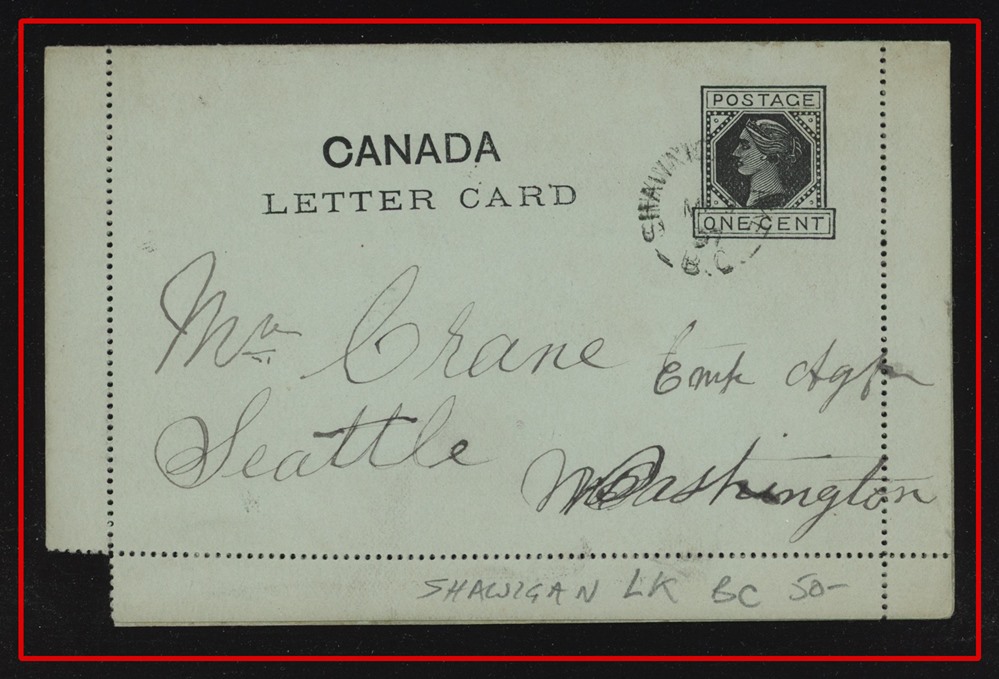 POSTAGE
CANADA
LETTER CARD
ONE CENT
B.C.
Mr Crane Emp Agt
Seattle
Washington
SHAWIGAN LK BC 50-